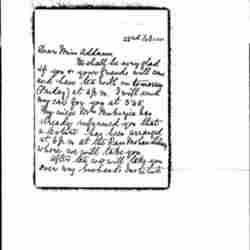 22nd February
Dear Miss Addams,
We shall be very glad
if you & your friends will come
and have tea with us tomorrow
(Friday) at 4 p.m. I will send
my car for you at 3.45.
My niece Mrs Mukerjee has
already informed you that
a lecture has been arranged
at 6 p.m. at the Ram Mohan Library
where we will take you.
After tea we will take you
over my husband's Institute